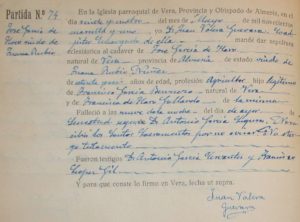 Partida N.º 74
José García de
Haro viudo de
Juana Rubio
En la Iglesia parroquial de Vera, Provincia y Obispado de Almería, en el
día veinte y del mes de Mayo de mil novecientos
cuarenta y uno D. Juan Valera Guevara Coad
de esta mandé dar sepultura
eclesiástica al cadáver de José García de Haro
natural de Vera provincia de Almería de estado viudo de
Juana Rubio
de años de edad, profesión Agricultor hijo legítimo
de Francisco García natural de Vera
y de Francisca de Haro Gallardo de la misma
Falleció a las nueve de la noche del día de ayer de
según D. Antonio García
los Santos Sacramentos por no avisar. No otor
gó testamento
Fueron testigos D. Antonio García y Francisco
López Gil
Y para que conste lo firmo en Vera, fecha ut supra.
Juan Valera
Guevara